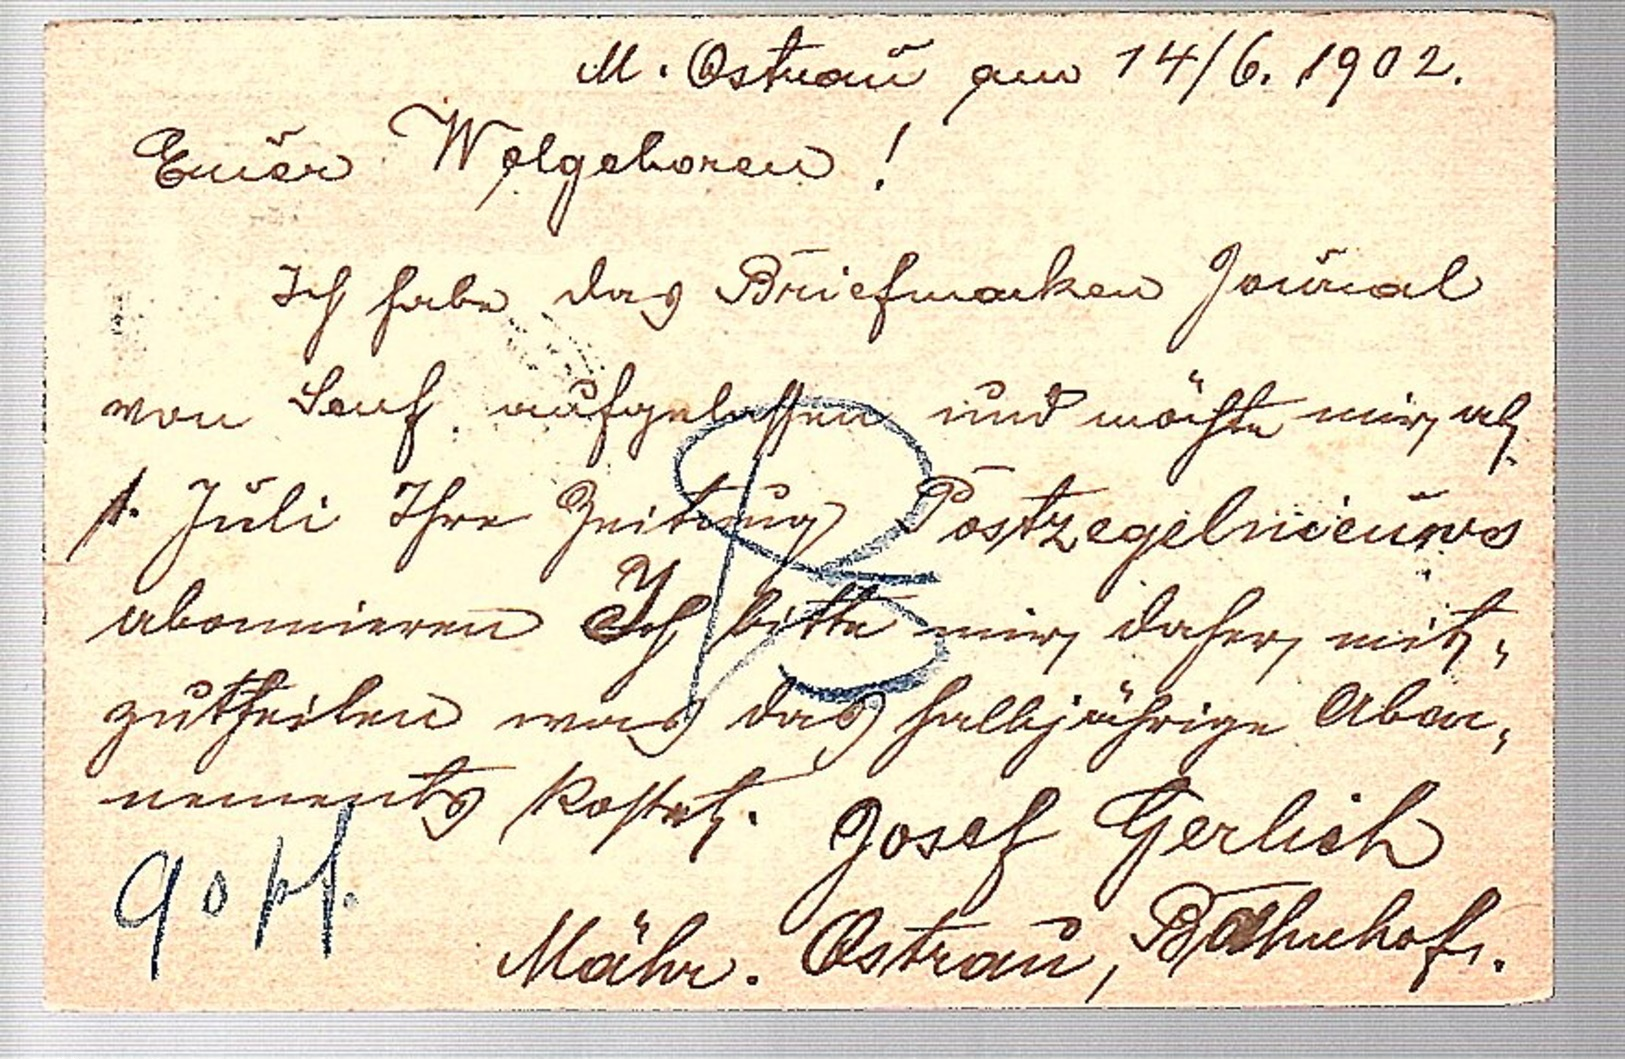 M. Ostrau am 14/6. 1902.
Euer Wolgeboren!
Ich habe das Briefmarken Journal
von Senf aufgelassen und möchte mir ab
1. Juli Ihre Zeitung Postzegelnieuws
abonnieren Ich bitte mir daher mit,
zutheilen was das halbjährige Abon,
nements kostet.
Josef Gerlich
90 Pf.
Mähr. Ostrau, Bahnhof.